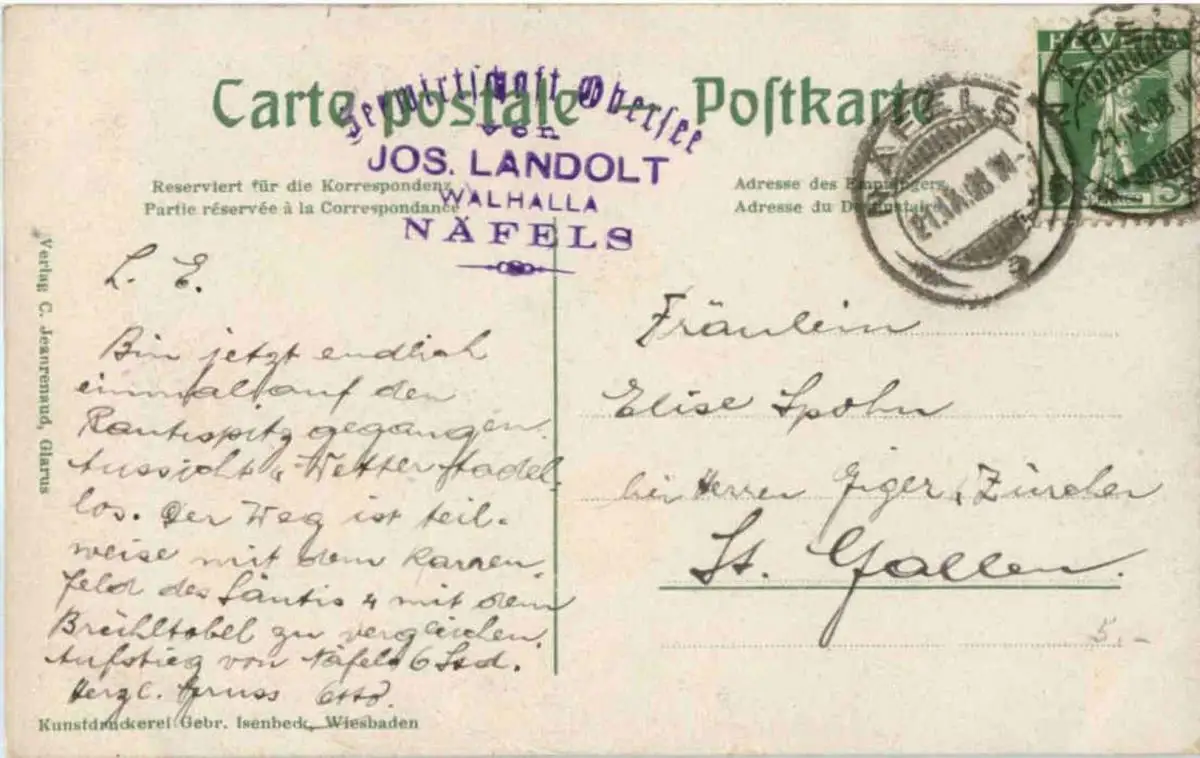 Carte postale — Postkarte
Seewirtschaft Obersee
von
JOS. LANDOLT
WALHALLA
NÄFELS
Reserviert für die Korrespondenz
Partie réservée à la Correspondance
Adresse des Empfängers
Adresse du Destinataire
NÄFELS
NÄFELS
HELVETIA
5
Verlag C. Jeanrenaud, Glarus
L. E.
Bin jetzt endlich
einmal auf den
Rautispitz gegangen.
Aussicht u. Wetter tadel-
los. Der Weg ist teil-
weise mit dem Karren-
feld des Säntis & mit dem
Brühltobel zu vergleichen.
Aufstieg von Näfels 6 Std.
Herzl. Gruss Otto.
Fräulein
Elise Spohn
bei Herren Giger & Zürcher
St. Gallen.
5.-
Kunstdruckerei Gebr. Isenbeck, Wiesbaden